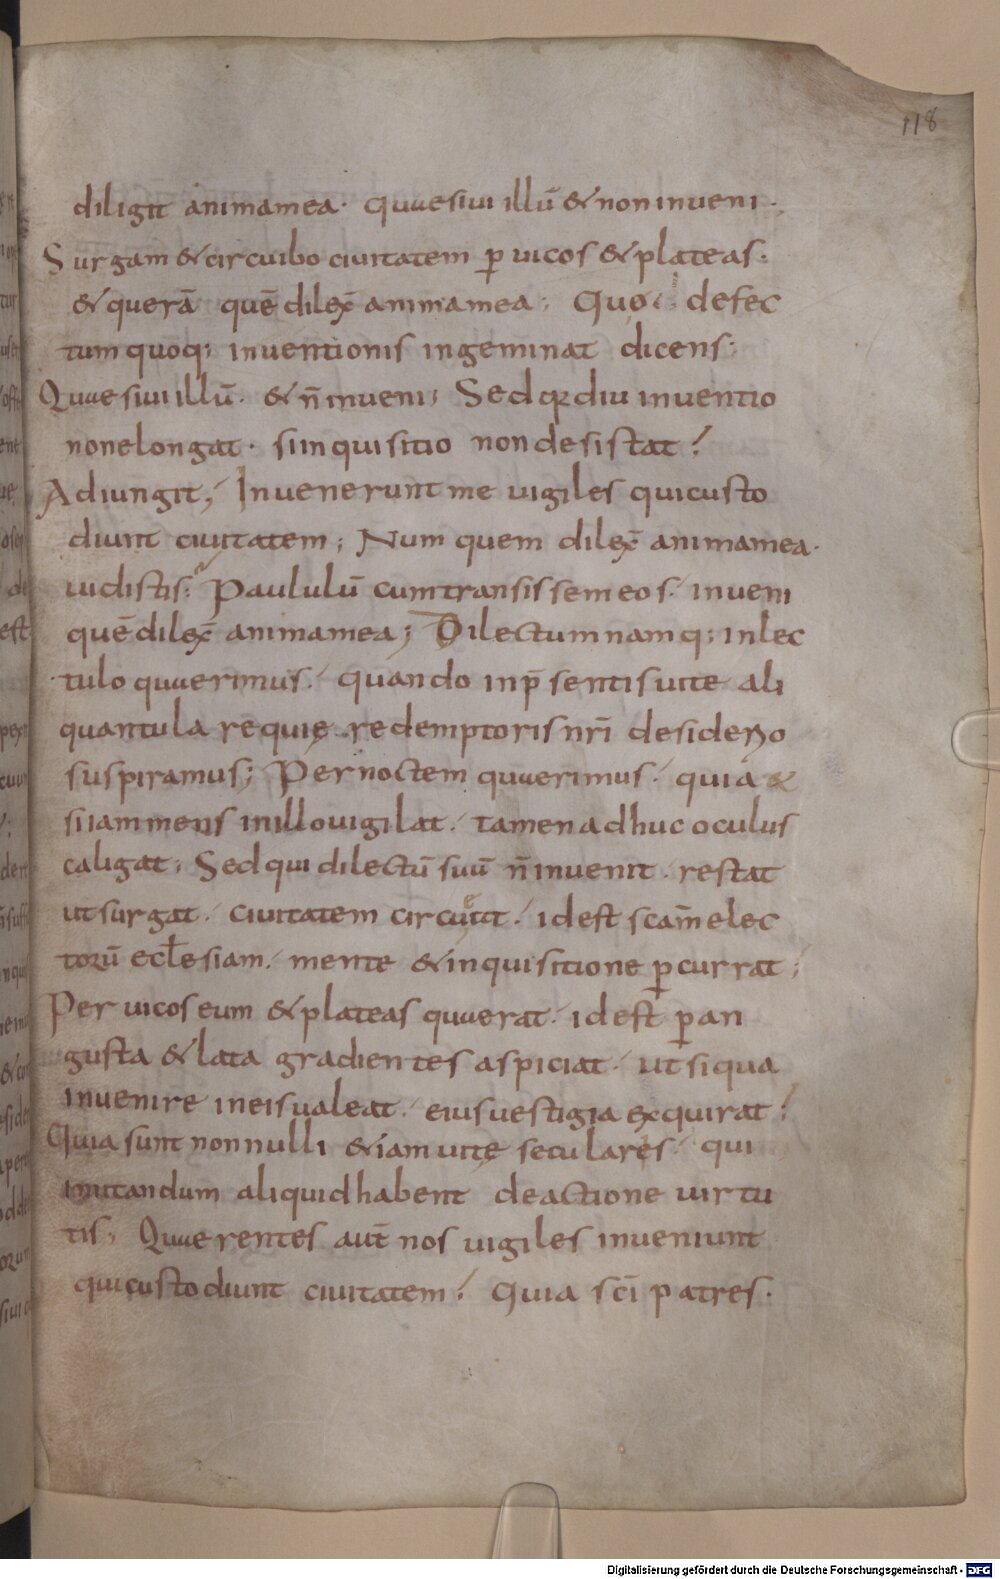 118
diligit animamea· quaesiui illū & noninueni·
Surgam & circuibo ciuitatem ꝑ uicos & plateas·
& querā quē dilex̄ animamea; Quo defec
tum quoq; inuentionis ingeminat dicens;
Quaesiui illū· & n̄ inueni; Sed qm̄diu inuentio
nonelongat· si inquisitio nondesistat?
Adiungit; Inuenerunt me uigiles quicusto
diunt ciuitatem; Num quem dilex̄ animamea·
uidistis; Paululū cumtransissem eos· inueni
quē dilex̄ animamea; Dilectum namq; inlec
tulo quaerimus· quando inp̄sentisuite ali
quantula requię redemptoris nr̄i desiderio
suspiramus; Pernoctem quaerimus· quia &
siiam mens inillouigilat· tamen adhuc oculus
caligat; Sed qui dilectū suū n̄ inuenit· restat
ut surgat· ciuitatem circueat· idest scam̄ elec
torū ecl̄esiam· mente & inquisitione ꝑcurrat;
Per uicos eum & plateas quaerat· idest ꝑ an
gusta & lata gradientes aspiciat· ut siqua
inuenire ineisualeat· eiusuestigia exquirat?
Quia sunt nonnulli etiam uitę seculares· qui
imitandum aliquid habent deactione uirtu
tis; Quaerentes aut̄ nos uigiles inueniunt
quicustodiunt ciuitatem? Quia sc̄i patres·
Digitalisierung gefördert durch die Deutsche Forschungsgemeinschaft - DFG